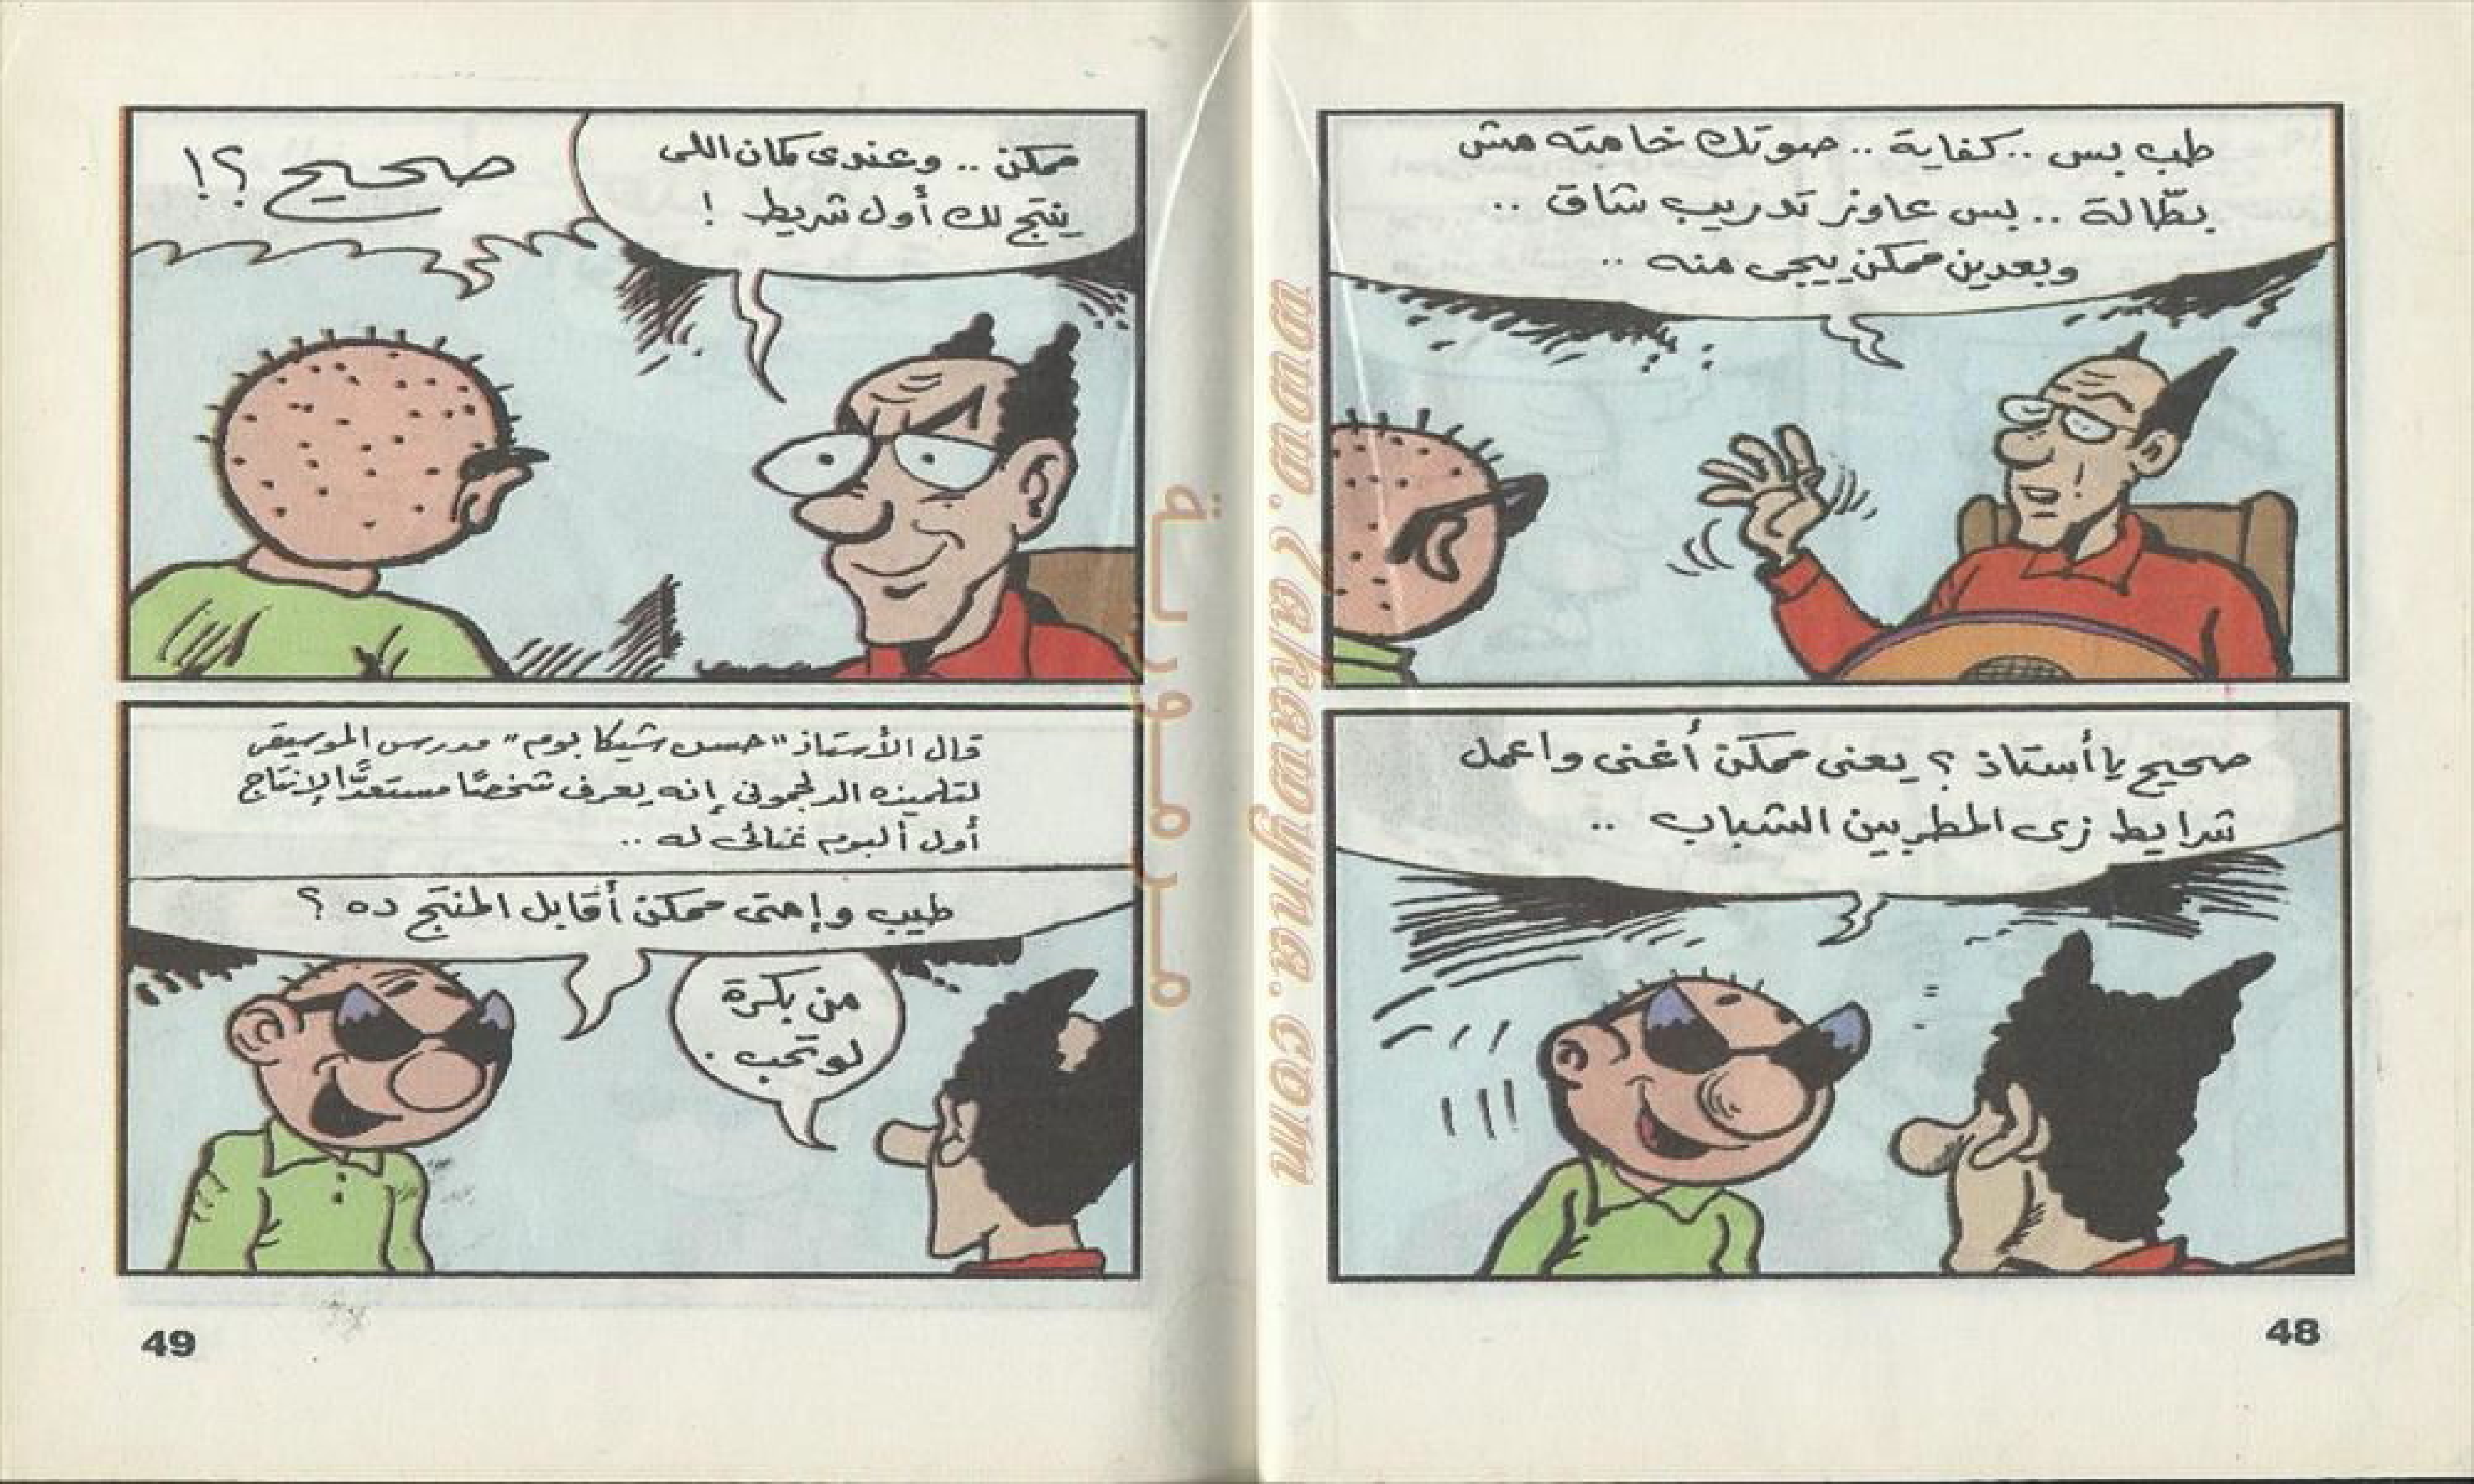 طب بس .. كفاية .. صوتك خامته مش
بطّالة .. بس عاوز تدريب شاق ..
وبعدين ممكن ييجى منه ..
صحيح يا أستاذ ؟ يعنى ممكن أغنى واعمل
شرايط زى المطربين الشباب ..
48
ممكن .. وعندى كمان اللى
ينتج لك أول شريط !
صحيح ؟!
قال الأستاذ "حسن شيكا بوم" مدرس الموسيقى
لتلميذه الدلجمونى إنه يعرف شخصًا مستعدًّا لإنتاج
أول ألبوم غنائى له ..
طيب وإمتى ممكن أقابل المنتج ده ؟
من بكرة
لو تحب .
49
مرمورية
www.Zakawyna.com